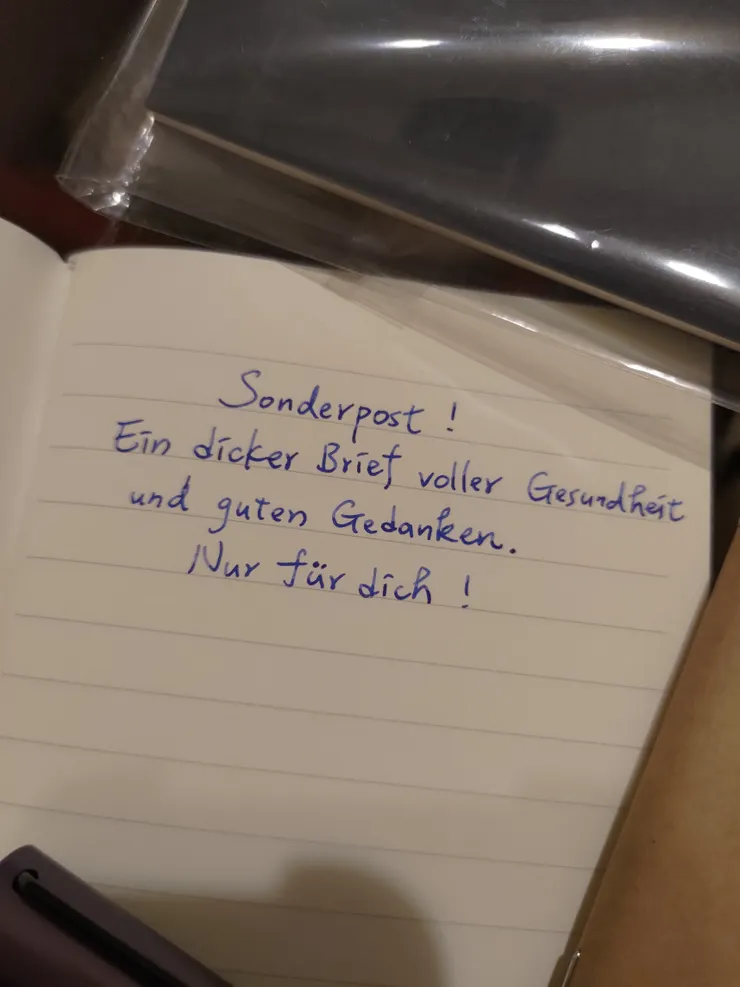 Sonderpost !
Ein dicker Brief voller Gesundheit
und guten Gedanken.
Nur für dich !